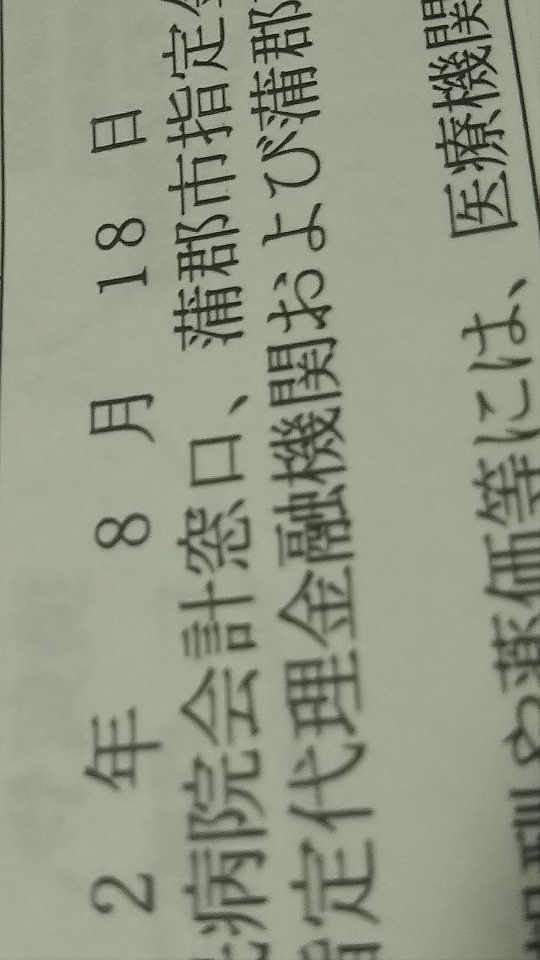 2 年 8 月 18 日
病院会計窓口、蒲郡市指定
指定代理金融機関および蒲郡
や薬価等には、医療機関